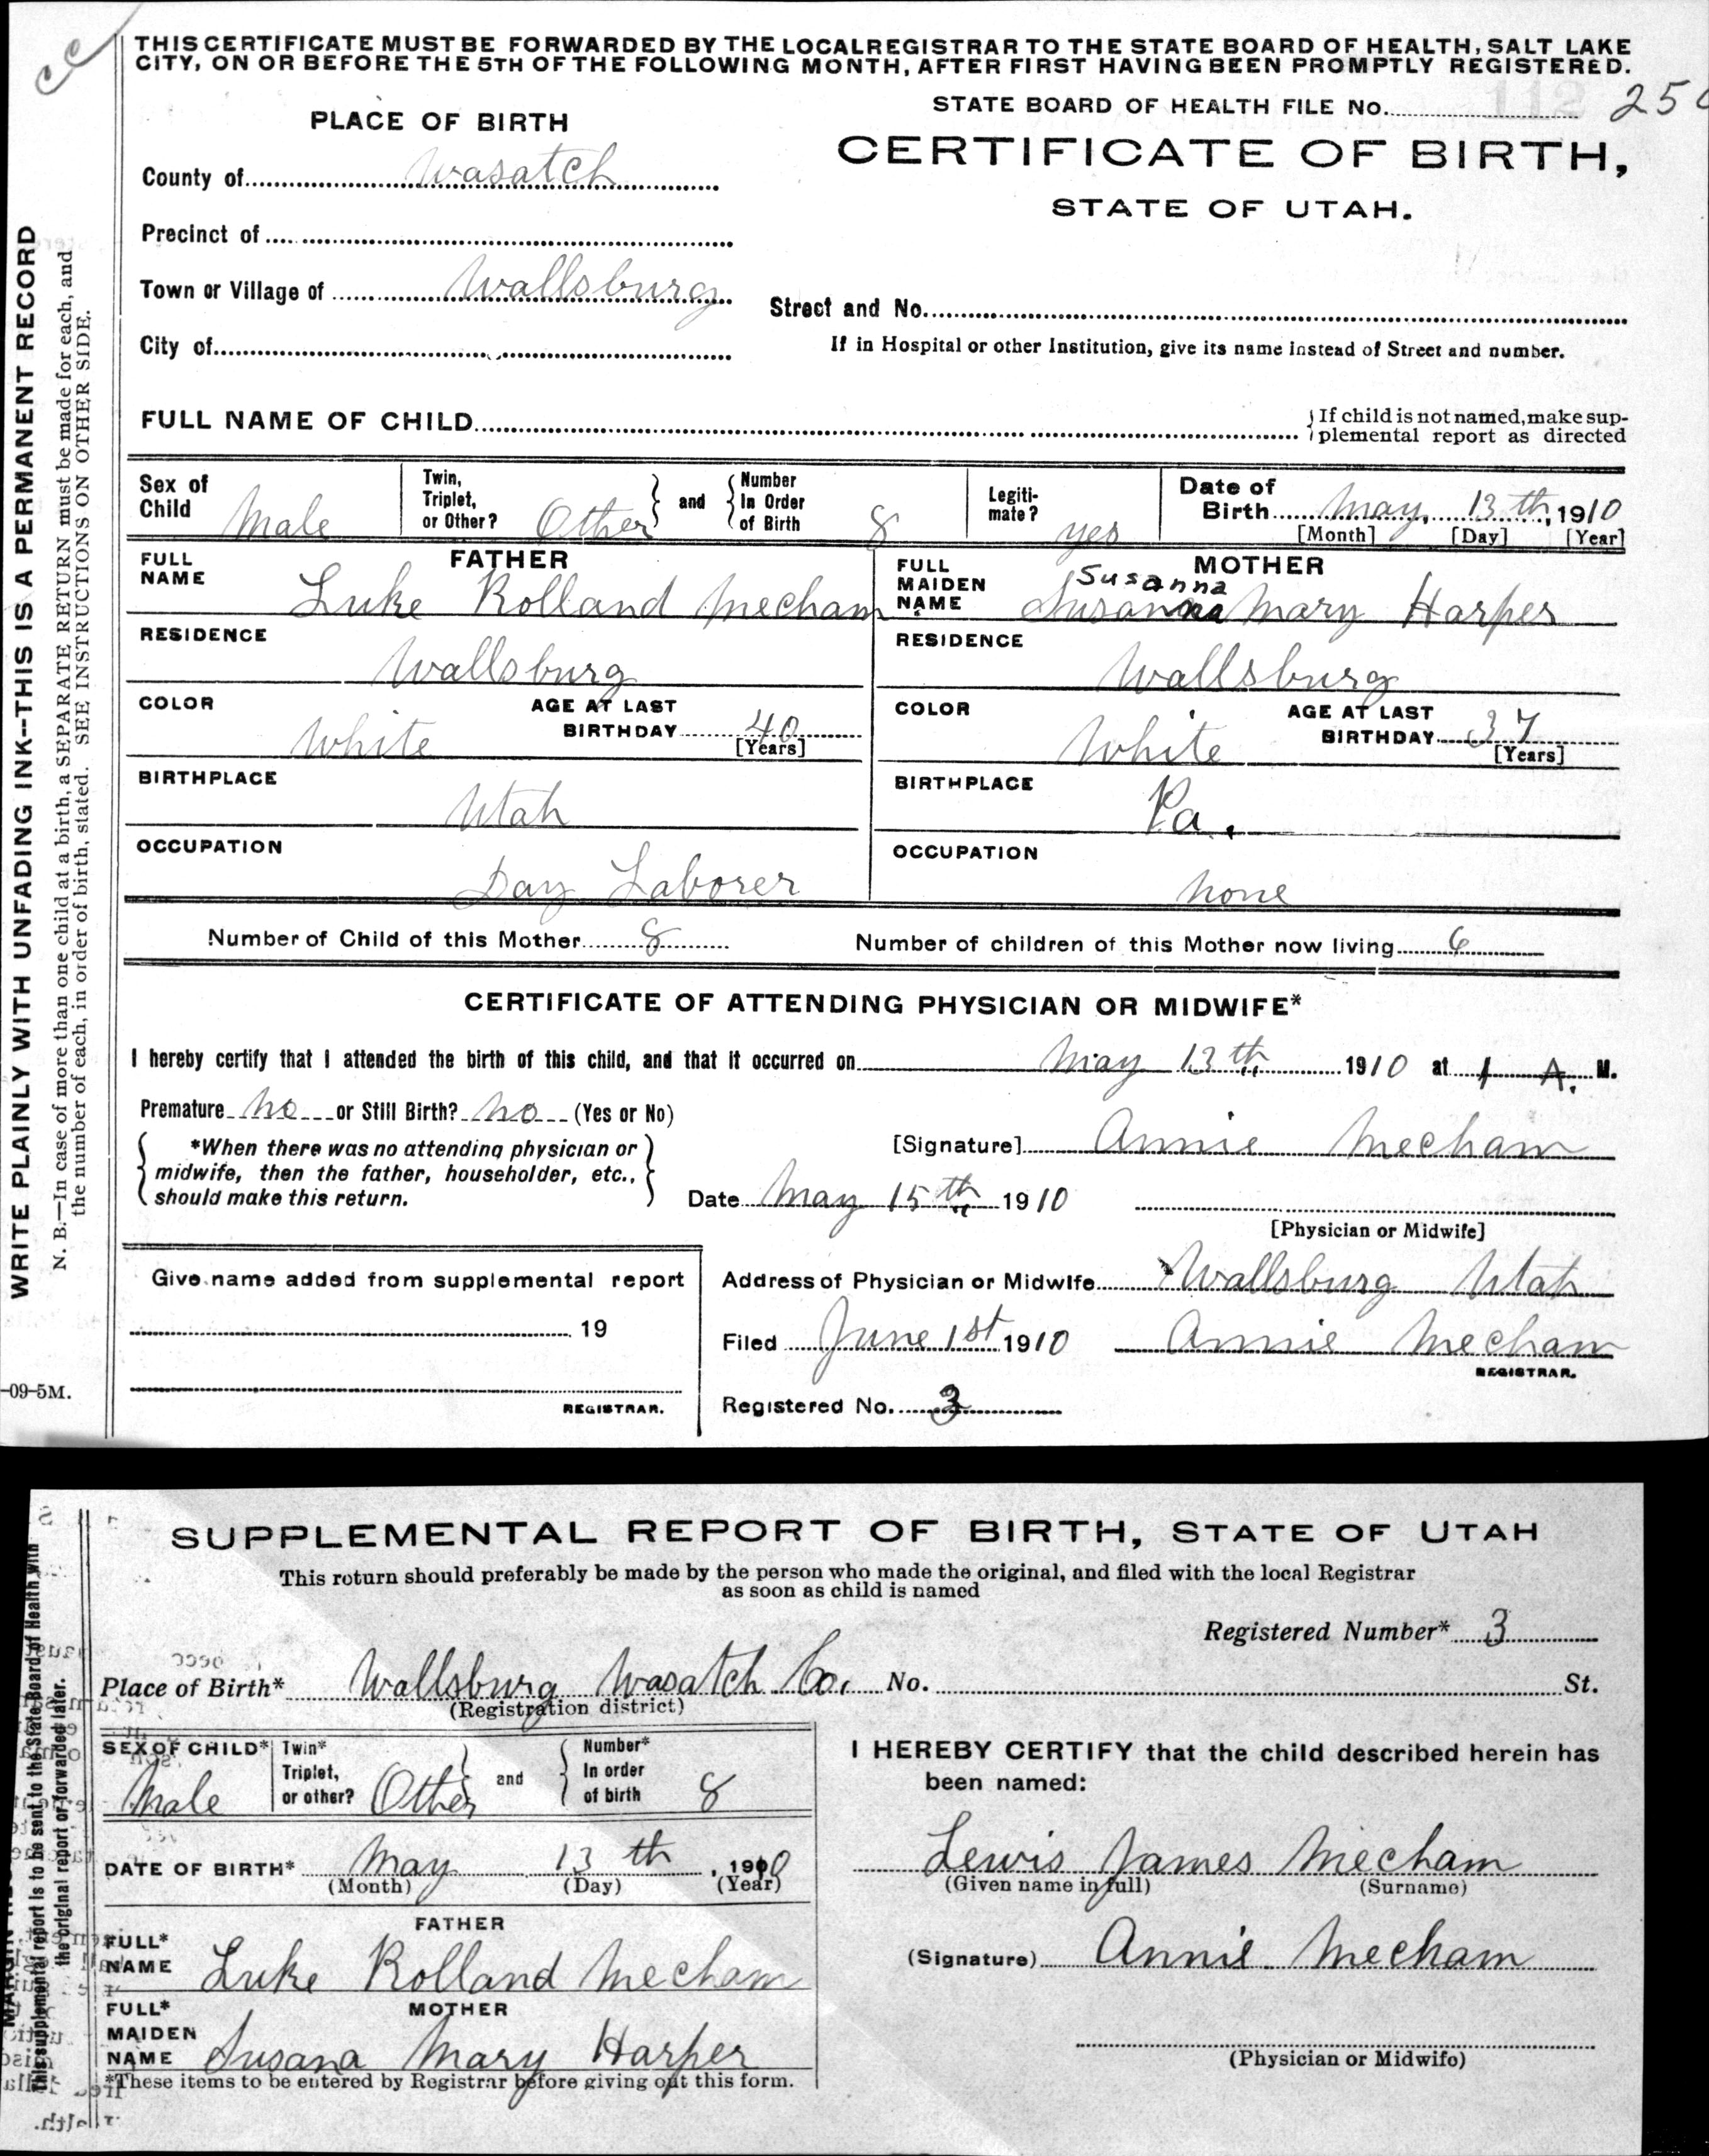 cc
THIS CERTIFICATE MUST BE FORWARDED BY THE LOCAL REGISTRAR TO THE STATE BOARD OF HEALTH, SALT LAKE
CITY, ON OR BEFORE THE 5TH OF THE FOLLOWING MONTH, AFTER FIRST HAVING BEEN PROMPTLY REGISTERED.
STATE BOARD OF HEALTH FILE No. 112 25
PLACE OF BIRTH
CERTIFICATE OF BIRTH,
STATE OF UTAH.
County of Wasatch
Precinct of
Town or Village of Wallsburg
Street and No.
City of
If in Hospital or other Institution, give its name instead of Street and number.
FULL NAME OF CHILD
If child is not named, make sup-
plemental report as directed
Sex of Child Male
Twin, Triplet, or Other? Other and Number In Order of Birth 8
Legiti-mate? yes
Date of Birth May, 13th, 1910
[Month] [Day] [Year]
FATHER
FULL NAME Luke Rolland Mecham
MOTHER
Susanna
FULL MAIDEN NAME Susanna Mary Harper
RESIDENCE Wallsburg
RESIDENCE Wallsburg
COLOR White AGE AT LAST BIRTHDAY 40 [Years]
COLOR White AGE AT LAST BIRTHDAY 37 [Years]
BIRTHPLACE Utah
BIRTHPLACE Pa.
OCCUPATION Day Laborer
OCCUPATION None
Number of Child of this Mother 8 Number of children of this Mother now living 6
CERTIFICATE OF ATTENDING PHYSICIAN OR MIDWIFE*
I hereby certify that I attended the birth of this child, and that it occurred on May 13th 1910 at 1 A. M.
Premature no or Still Birth? no (Yes or No)
*When there was no attending physician or
midwife, then the father, householder, etc.,
should make this return.
[Signature] Annie Mecham
Date May 15th 1910
[Physician or Midwife]
Give name added from supplemental report
19
REGISTRAR.
Address of Physician or Midwife Wallsburg Utah
Filed June 1st 1910 Annie Mecham
REGISTRAR.
Registered No. 3
WRITE PLAINLY WITH UNFADING INK--THIS IS A PERMANENT RECORD
N. B.—In case of more than one child at a birth, a SEPARATE RETURN must be made for each, and
the number of each, in order of birth, stated. SEE INSTRUCTIONS ON OTHER SIDE.
-09-5M.
SUPPLEMENTAL REPORT OF BIRTH, STATE OF UTAH
This return should preferably be made by the person who made the original, and filed with the local Registrar
as soon as child is named
Registered Number* 3
Place of Birth* Wallsburg Wasatch Co. No. St.
(Registration district)
SEX OF CHILD* Male
Twin* Triplet, or other? Other and Number* In order of birth 8
DATE OF BIRTH* May 13th, 1910
(Month) (Day) (Year)
FATHER
FULL* NAME Luke Rolland Mecham
MOTHER
FULL* MAIDEN NAME Susana Mary Harper
*These items to be entered by Registrar before giving out this form.
I HEREBY CERTIFY that the child described herein has
been named:
Lewis James Mecham
(Given name in full) (Surname)
(Signature) Annie Mecham
(Physician or Midwife)
This supplemental report is to be sent to the State Board of Health with
the original report or forwarded later.